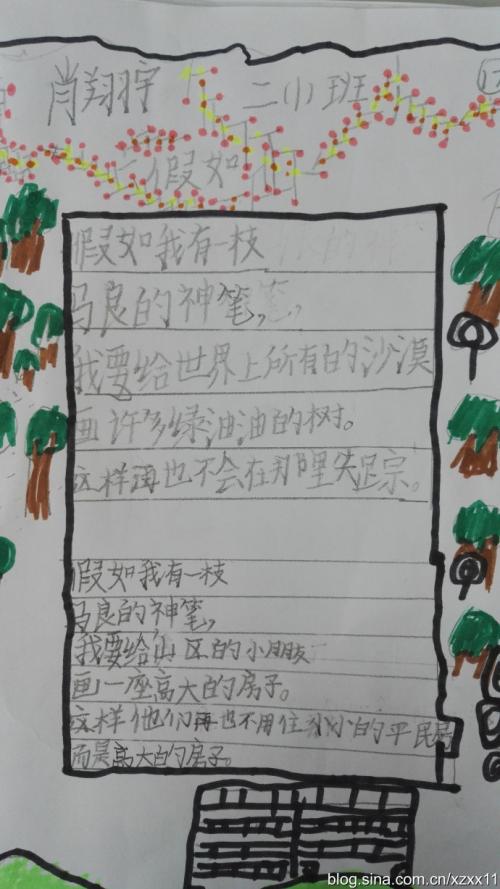 肖翔宇 二(1)班
假如
假如我有一枝
马良的神笔，
我要给世界上所有的沙漠
画许多绿油油的树。
这样再也不会在那里失足宗。
假如我有一枝
马良的神笔，
我要给山区的小朋友
画一座高大的房子。
这样他们再也不用住 小的平民房
而是高大的房子。
blog.sina.com.cn/xzxx11